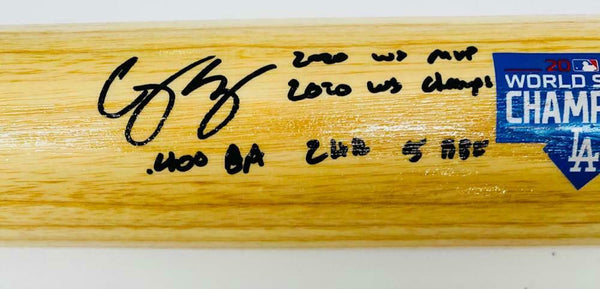 2020 WS MVP
2020 WS Champs
.400 BA 2HR 5 RBI
20
WORLD S
CHAMP
LA